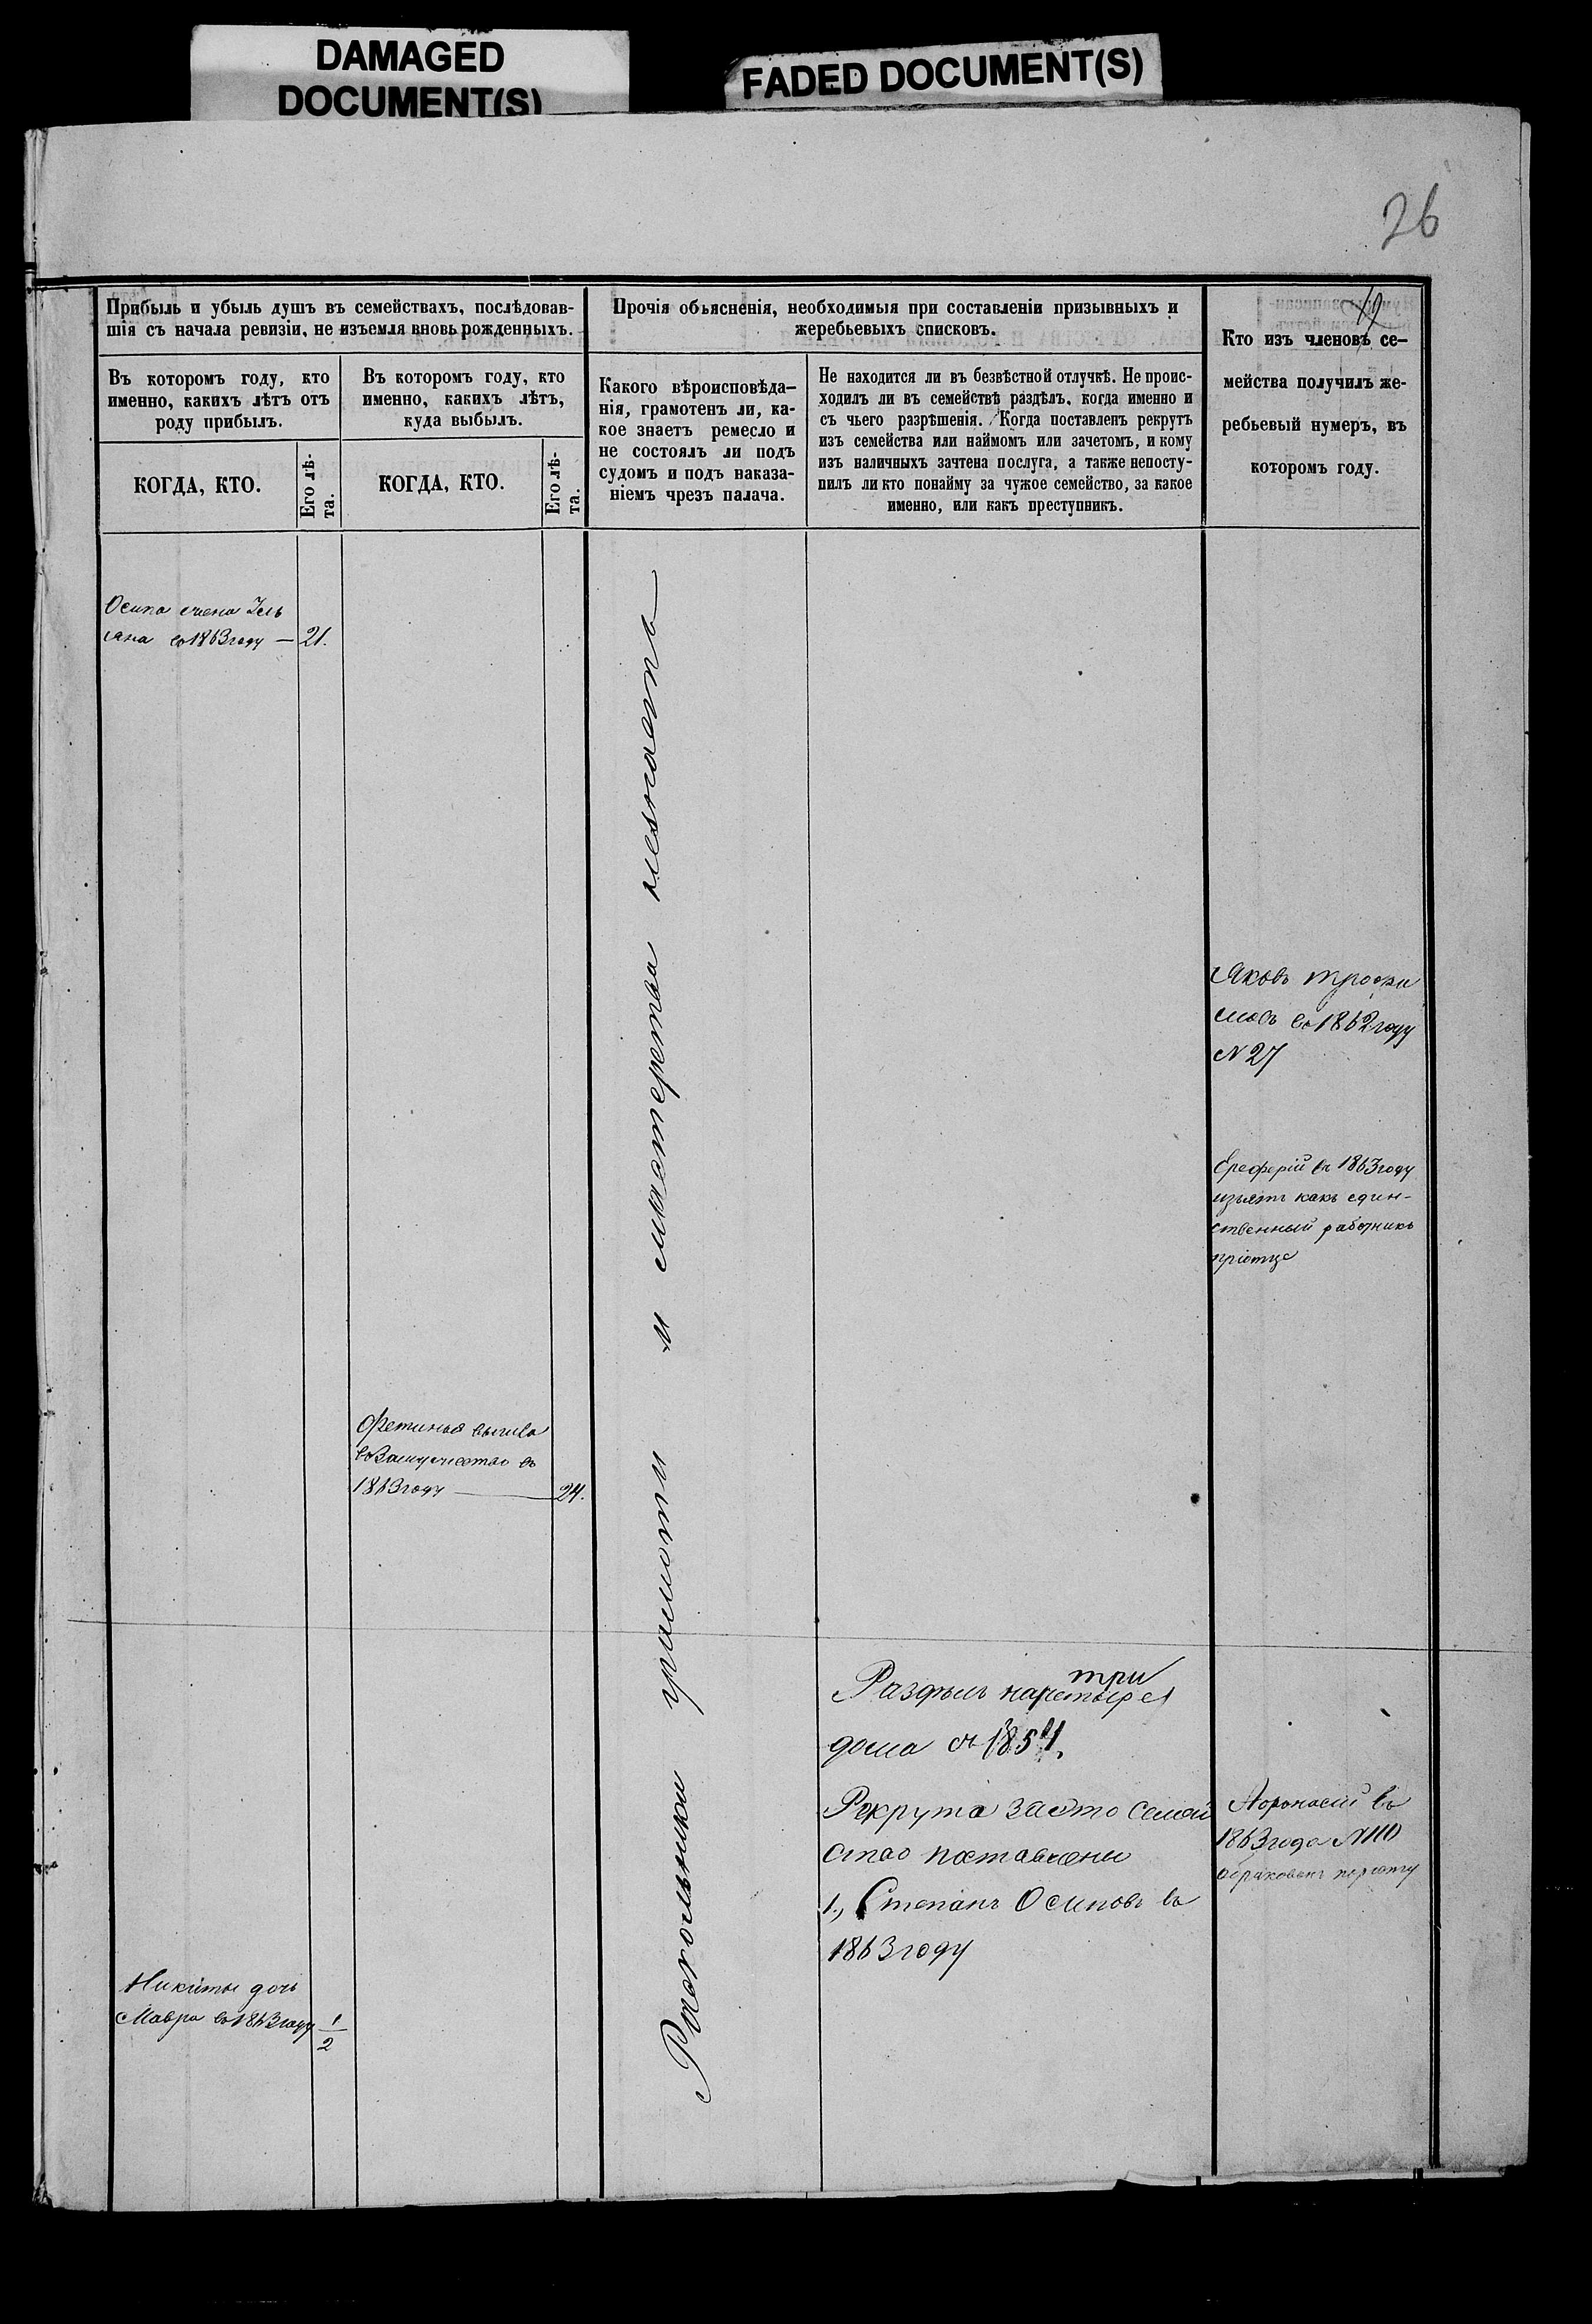 DAMAGED
DOCUMENT(S)
FADED DOCUMENT(S)
26
19
Прибыль и убыль душъ въ семействахъ, послѣдовав-
шія съ начала ревизіи, не изъемля вновь рожденныхъ.
Въ которомъ году, кто
именно, какихъ лѣтъ отъ
роду прибылъ.
КОГДА, КТО.
Его лѣ-
та.
Въ которомъ году, кто
именно, какихъ лѣтъ,
куда выбылъ.
КОГДА, КТО.
Его лѣ-
та.
Прочія объясненія, необходимыя при составленіи призывныхъ и
жеребьевыхъ списковъ.
Какого вѣроисповѣда-
нія, грамотенъ ли, ка-
кое знаетъ ремесло и
не состоялъ ли подъ
судомъ и подъ наказа-
ніемъ чрезъ палача.
Не находится ли въ безвѣстной отлучкѣ. Не проис-
ходилъ ли въ семействѣ раздѣлъ, когда именно и
съ чьего разрѣшенія. Когда поставленъ рекрутъ
изъ семейства или наймомъ или зачетомъ, и кому
изъ наличныхъ зачтена послуга, а также непосту-
пилъ ли кто понайму за чужое семейство, за какое
именно, или какъ преступникъ.
Кто изъ членовъ се-
мейства получилъ же-
ребьевый нумеръ, въ
которомъ году.
Осипа жена
въ 1863 году — 21.
Яковъ трофи
мовъ въ 1862 году
N 27
Ереферій въ 1863 году
изъятъ какъ един-
ственный работникъ
приотце
Фетинья вышла
въ Замужество въ
1863 году — 24.
Раскольники грамоти и мастерства незнаютъ
Раздѣлъ начетыре три
дома съ 1854.
Рекрута заэто Семей
ство поставлены
1., Степанъ Осиповъ въ
1863 году
Афонасий въ
1863 года N
обракованъ
Никиты дочь
Мавра въ 1863 году 1/2